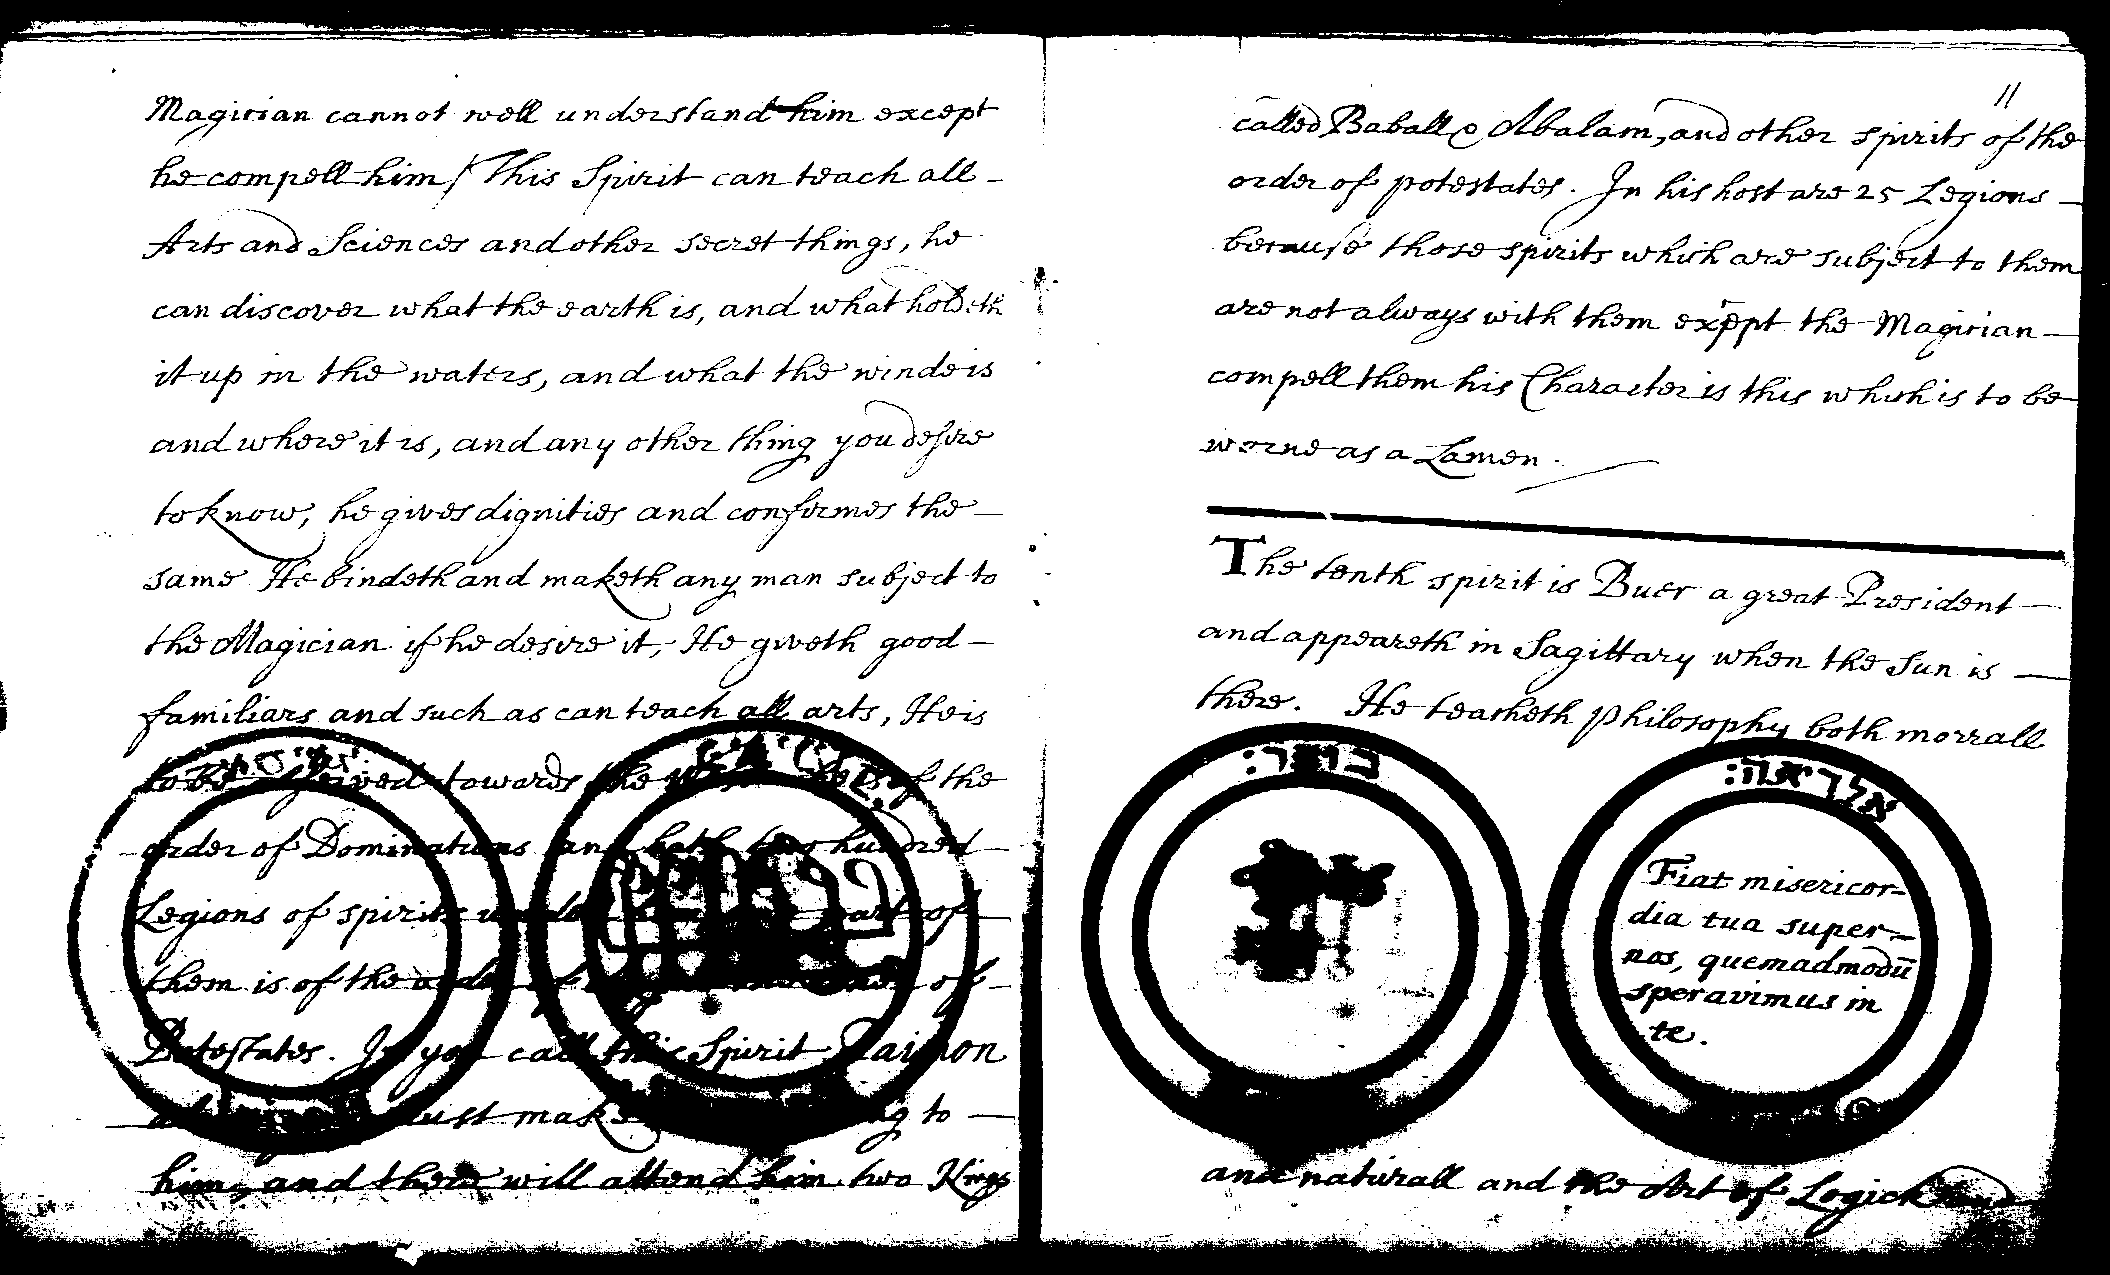 Magician cannot well understand him except
he compell him / This Spirit can teach all -
Arts and Sciences and other secret things, he
can discover what the earth is, and what holdeth
it up in the waters, and what the winde is
and where it is, and any other thing you desire
to know, he gives dignities and confirmes the -
same He bindeth and maketh any man subject to
the Magician if he desire it, He giveth good -
familiars and such as can teach all arts, He is
to be towards the of the
order of Dominations and hath hundred
Legions of spirits part of
them is of the of
Potestates. If you call this Spirit Paimon
must make to -
him, and there will attend him two Kings
11
called Baball & Abalam, and other spirits of the
order of potestates. In his host are 25 Legions -
because those spirits which are subject to them
are not always with them except the Magician -
compell them his Character is this which is to be
worne as a Lamen.
The tenth spirit is Buer a great President -
and appeareth in Sagittary when the Sun is -
there. He teacheth philosophy both morrall
בואר:
אלדיאה:
Fiat misericor-
dia tua super-
nos, quemadmodū
speravimus in
te.
and naturall and the Art of Logick and